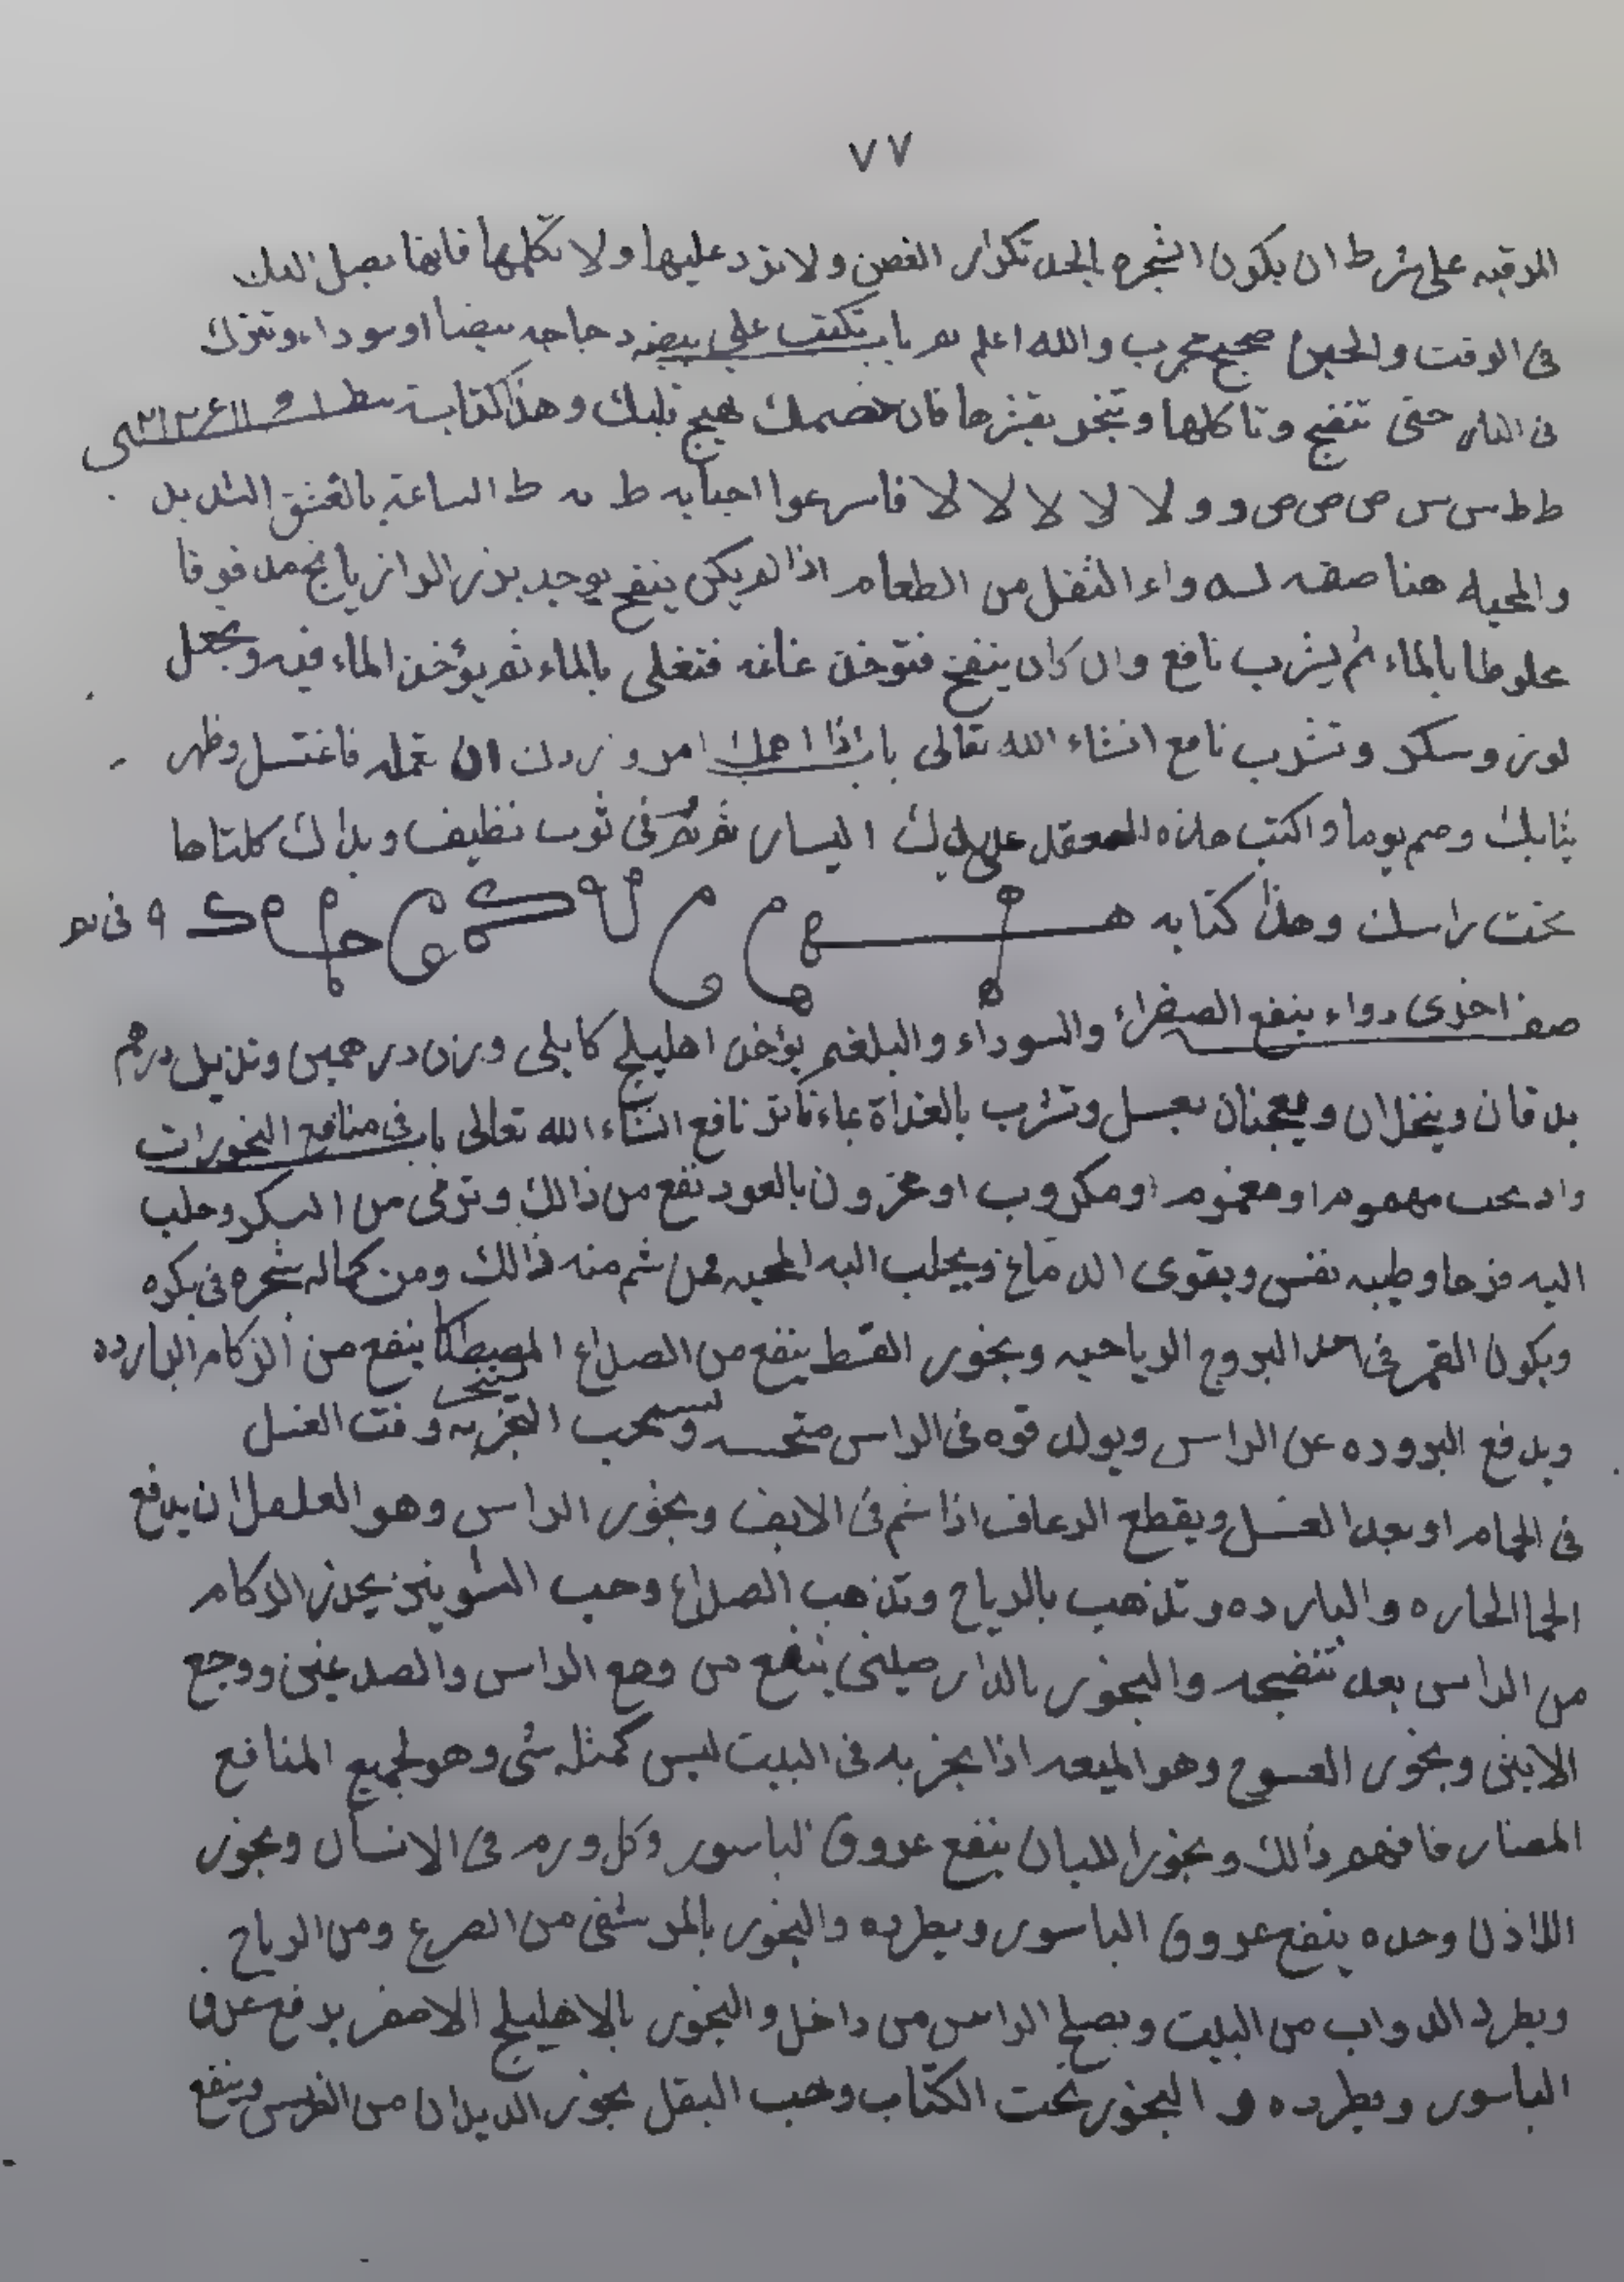 ٧٧
على شرط ان يكون الشجره تكرار الغصن ولا تزد عليها ولا تكلمها فانها تصل اليك
فى الوقت والحين صحيح مجرب والله اعلم تم باب تكتب على بيضه دجاجه بيضا او سوداء وتترك
فى النار حتى تنفج وتاكلها وتبخر بقشرها فان خصمك يهيج قلبك وهذا كتابة
ط ط س س ص ص ص و و لا لا لا لا لا فاسرعوا اجبايه ط ط الساعة بالعشق الشديد
والمحبه هنا صفه دواء الثفل من الطعام اذا لم يكن ينفح يوجد بذر الرازيانج
بالماء ثم يشرب نافع وان كان ينفخ فتوخذ فتغلى بالماء ثم يؤخذ الماء فيه ويجعل
لوز وسكر وتشرب نافع انشاء الله تعالى باب اذا اهمك امر و ان تمله فاغتسل وطهر
ثيابك وصم يوما واكتب هذه على يدك اليسار ثم فى ثوب نظيف ويداك كلتاها
تحت راسك وهذا كتابه
صفه اخرى دواء ينفع الصفراء والسوداء والبلغم يؤخذ اهليلج كابلى وزن درهمين درهم
يدقان وينخلان ويعجنان بعسل وتشرب بالغداة بماء فاتر نافع انشاء الله تعالى باب فى منافع البخورات
مهموم او مغموم او مكروب او محزون بالعود نفع من ذالك من السكر وجلب
اليه فرحا وطيبه نفس ويقوى الدماغ ويجلب اليه المحبه ممن شم منه ذالك ومن كماله فى بكره
ويكون القمر فى احد البروج الرياحيه وبخور القسط ينفع من الصداع المصطكا ينفع من الزكام البارده
ويدفع البروده عن الراس ويولد قوه فى الراس وقت الغسل
فى الحمام او بعد الغسل ويقطع الرعاف اذا شم فى الانف وبخور الراس وهو ان يدفع
الحما الحاره والبارده وتذهب بالرياح وتذهب الصداع وحب الشوينز يحدر الزكام
من الراس بعد تنضيجه والبخور بالدارصينى ينفع من وجع الراس والصدغين ووجع
وبخور وهو الميعه اذا بخر به فى البيت ليس كمثله شى وهو لجميع المنافع
المضار فافهم ذالك وبخور اللبان ينفع عروق الباسور وكل ورم فى الانسان وبخور
اللاذن وحده ينفع عروق الباسور ويطرده والبخور بالمر شفى من الصرع ومن الرياح
ويطرد الدواب من البيت ويصلح الراس من داخل والبخور بالاهليلج الاصفر يدفع عرق
الباسور ويطرده و البخور تحت الكتاب وحب البقل يخور الديدان من الضرس وينفع